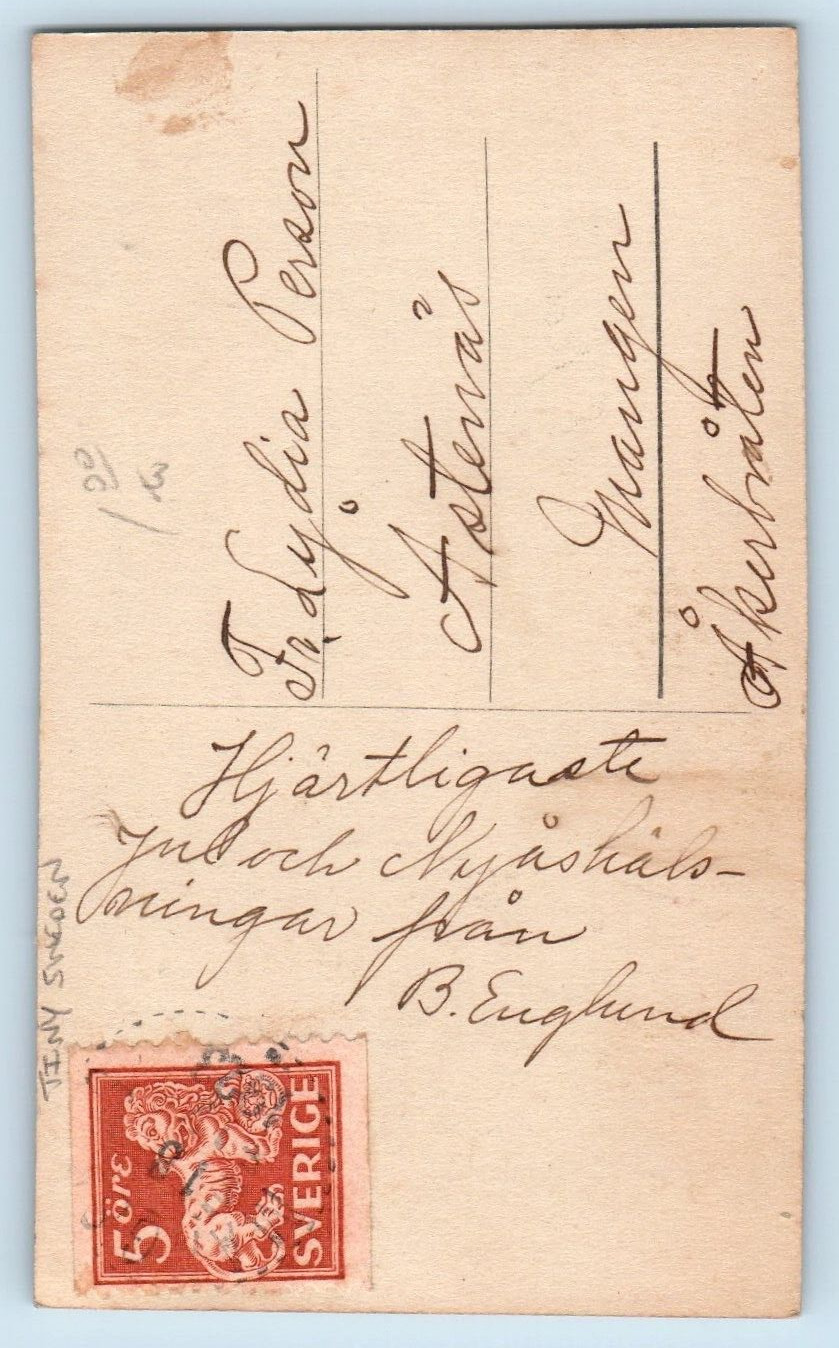 Fr. Lydia Person
Åstenäs
Mangen
Åkerbråten
Hjärtligaste
Jul och Nyåshäls-
ningar från
B. Englund
TINY SWEDEN
5 öre
SVERIGE